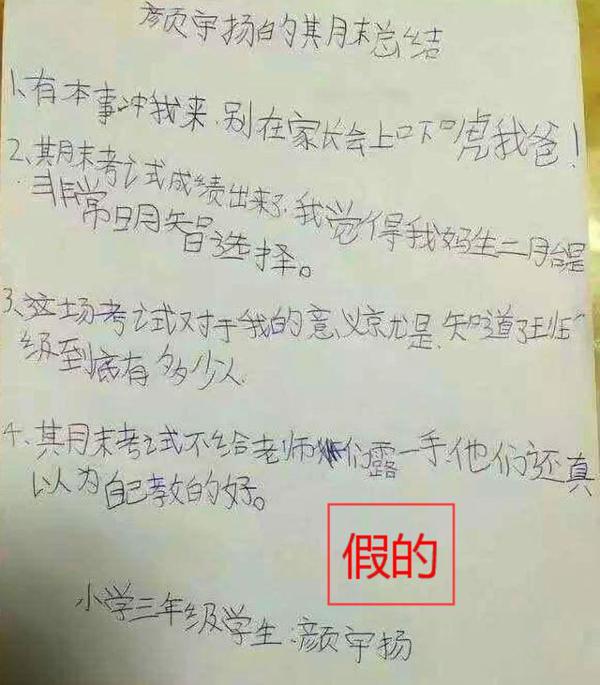 颜宇扬的期月末总结
1、有本事冲我来,别在家长会上吓唬我爸!
2、期月末考试成绩出来了,我觉得我妈生二胎是
非常明智选择。
3、这场考试对于我的意义就是,知道了班
级到底有多少人
4、期末考试不给老师们露一手,他们还真
以为自己教的好。
假的
小学三年级学生:颜宇扬